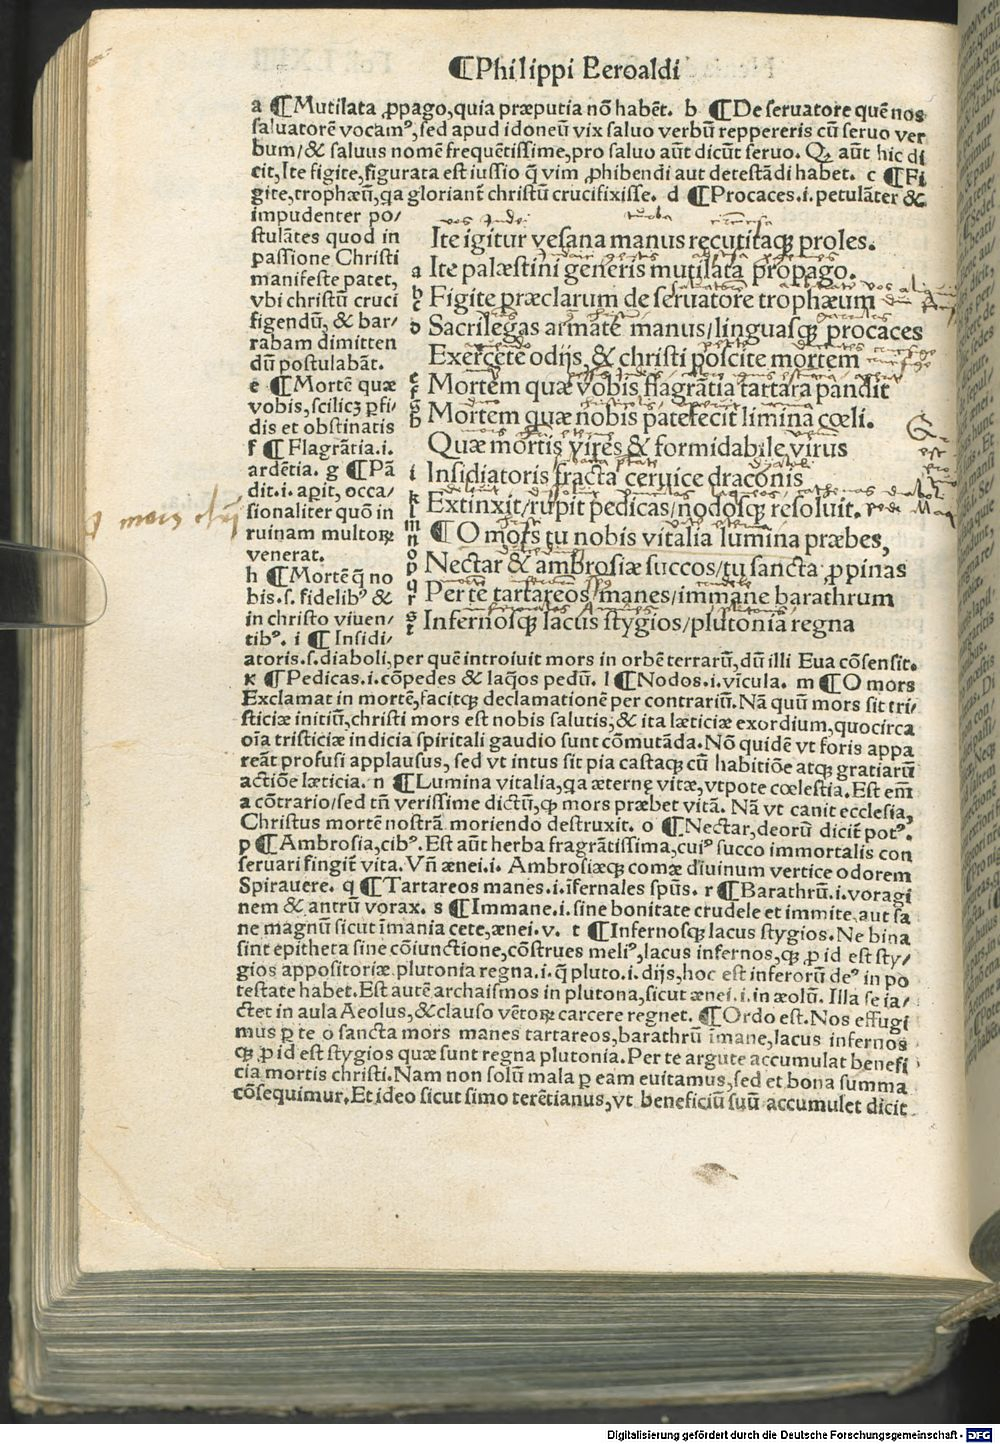 ¶Philippi Beroaldi
a ¶Mutilata ꝓpago,quia præputia nõ habẽt. b ¶De seruatore quẽ nos
saluatorẽ vocamꝰ,sed apud idoneũ vix saluo verbũ reppereris cũ seruo ver
bum/& saluus nomẽ frequẽtissime,pro saluo aũt dicũt seruo. Qꝫ aũt hic di
cit,Ite figite,figurata est iussio q̃ vim ꝓhibendi aut detestãdi habet. c ¶Fi
gite,trophæũ,qa glorianť christũ crucifixisse. d ¶Procaces.i.petulãter &
impudenter po/
stulãtes quod in
passione Christi
manifeste patet,
vbi christũ cruci
figendũ, & bar/
rabam dimitten
dũ postulabãt.
e ¶Mortẽ quæ
vobis,scilicꝫ ꝑfi/
dis et obstinatis
f ¶Flagrãtia.i.
ardẽtia. g ¶Pã
dit.i.aꝑit, occa/
sionaliter quõ in
ruinam multoꝝ
venerat.
h ¶Mortẽ q̃ no
bis.s.fidelibꝰ &
in christo viuen/
tibꝰ. i ¶Insidi/
vos Iudei turba circũcisa
Ite igitur vesana manus recutitaqꝫ proles.
a Ite palæstini generis mutilata propago.
b Figite præclarum de seruatore trophæum
c
d Sacrilegas armate manus/linguasqꝫ procaces
Exercete odijs & christi poscite mortem
e Mortem quæ vobis flagrãtia tartara pandit
f
g Mortem quæ nobis patefecit limina cœli.
h
Quæ mortis vires & formidabile virus
i Insidiatoris fracta ceruice draconis
k Extinxit/rupit pedicas/nodosqꝫ resoluit.
l
m ¶O mors tu nobis vitalia lumina præbes,
n
o Nectar & ambrosiæ succos/tu sancta ꝓpinas
p
q Per te tartareos/manes/immane barathrum
r
s Infernosqꝫ lacus stygios/plutonia regna
t
mors chri
atoris.s.diaboli,per quẽ introiuit mors in orbẽ terrarũ,dũ illi Eua cõsensit.
k ¶Pedicas.i.cõpedes & laq̃os pedũ. l ¶Nodos.i.vĩcula. m ¶O mors
Exclamat in mortẽ,facitqꝫ declamationẽ per contrariũ. Nã quũ mors sit tri/
sticiæ initiũ,christi mors est nobis salutis,& ita læticiæ exordium,quocirca
oĩa tristiciæ indicia spiritali gaudio sunt cõmutãda. Nõ quidẽ vt foris appa
reãt profusi applausus, sed vt intus sit pia castaqꝫ cũ habitiõe atqꝫ gratiarũ
actiõe læticia. n ¶Lumina vitalia,qa æternę vitæ,vtpote cœlestia.Est em̃
a cõtrario/sed tñ verissime dictũ,qꝫ mors præbet vitã. Nã vt canit ecclesia,
Christus mortẽ nostrã moriendo destruxit. o ¶Nectar,deorũ diciť potꝰ.
p ¶Ambrosia,cibꝰ.Est aũt herba fragrãtissima,cuiꝰ succo immortalis con
seruari fingiť vita. Vñ ænei.i. Ambrosiæqꝫ comæ diuinum vertice odorem
Spirauere. q ¶Tartareos manes.i.ĩfernales spũs. r ¶Barathrũ.i.voragi
nem & antrũ vorax. s ¶Immane.i.sine bonitate crudele et immite,aut sa
ne magnũ sicut ĩmania cete,ænei.v. t ¶Infernosqꝫ lacus stygios.Ne bina
sint epitheta sine cõiunctione,cõstrues meliꝰ,lacus infernos,qꝫ ꝓ id est sty/
gios appositoriæ plutonia regna.i.q̃ pluto.i.dijs,hoc est inferorũ deꝰ in po
testate habet.Est autẽ archaismos in plutona,sicut ænei.i.in æolũ. Illa se ia/
ctet in aula Aeolus,&clauso vẽtoꝝ carcere regnet. ¶Ordo est.Nos effugi
mus ꝑ te o sancta mors manes tartareos,barathrũ ĩmane,lacus infernos
qꝫ ꝓ id est stygios quæ sunt regna plutonia.Per te argute accumulat benefi
cia mortis christi.Nam non solũ mala ꝑ eam euitamus,sed et bona summa
cõsequimur.Et ideo sicut simo terẽtianus,vt beneficiũ suũ accumulet dicit
Digitalisierung gefördert durch die Deutsche Forschungsgemeinschaft - DFG